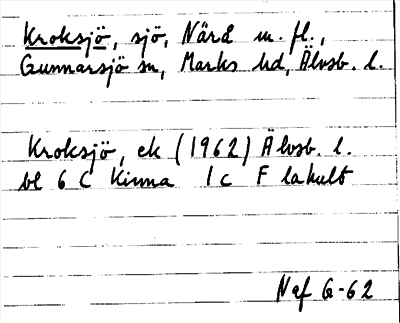 Kroksjö, sjö, Närd m. fl.,
Gunnarsjö sn, Marks hd, Älvsb. l.
Kroksjö, ek (1962) Älvsb. l.
bl 6 C Kinna 1 c Flahult
Naf G-62